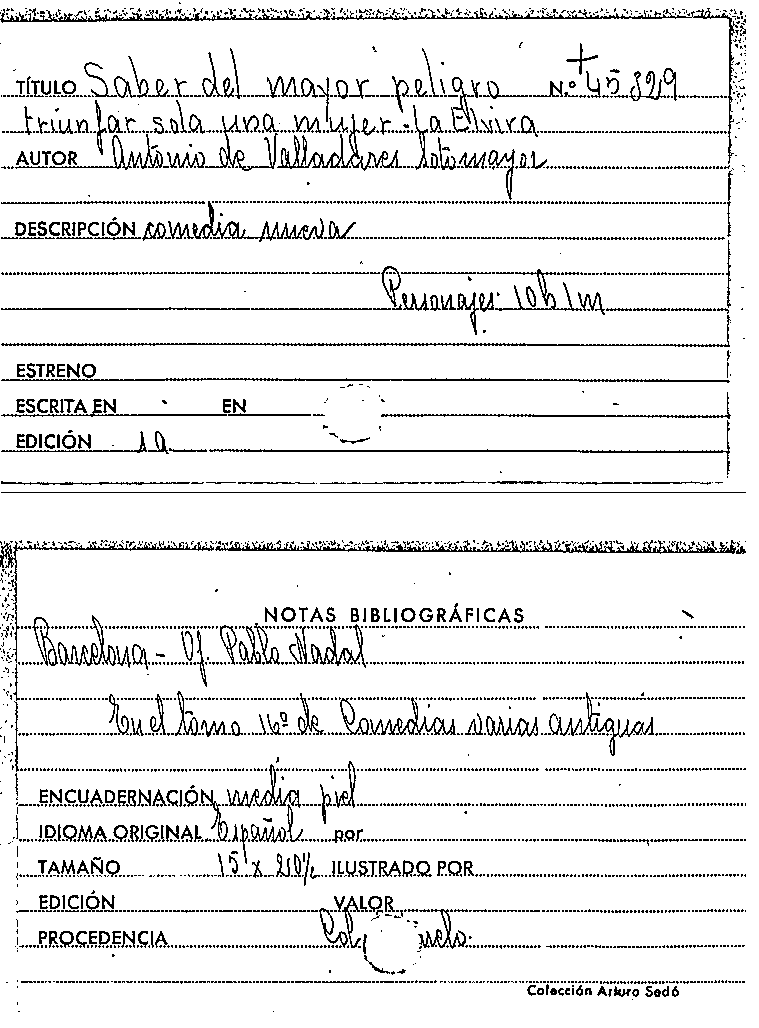 TÍTULO Saber del mayor peligro N.º 45829
triunfar sola una mujer. La Elvira
AUTOR Antonio de Valladares Sotomayor
DESCRIPCIÓN comedia nueva
Personajes: 10h 1m
ESTRENO
ESCRITA EN EN
EDICIÓN
NOTAS BIBLIOGRÁFICAS
Barcelona - Of. Pablo Nadal
En el tomo 16º de Comedias varias antiguas
ENCUADERNACIÓN media piel
IDIOMA ORIGINAL Español por
TAMAÑO 15 x ILUSTRADO POR
EDICIÓN VALOR
PROCEDENCIA
Colección Arturo Sedó